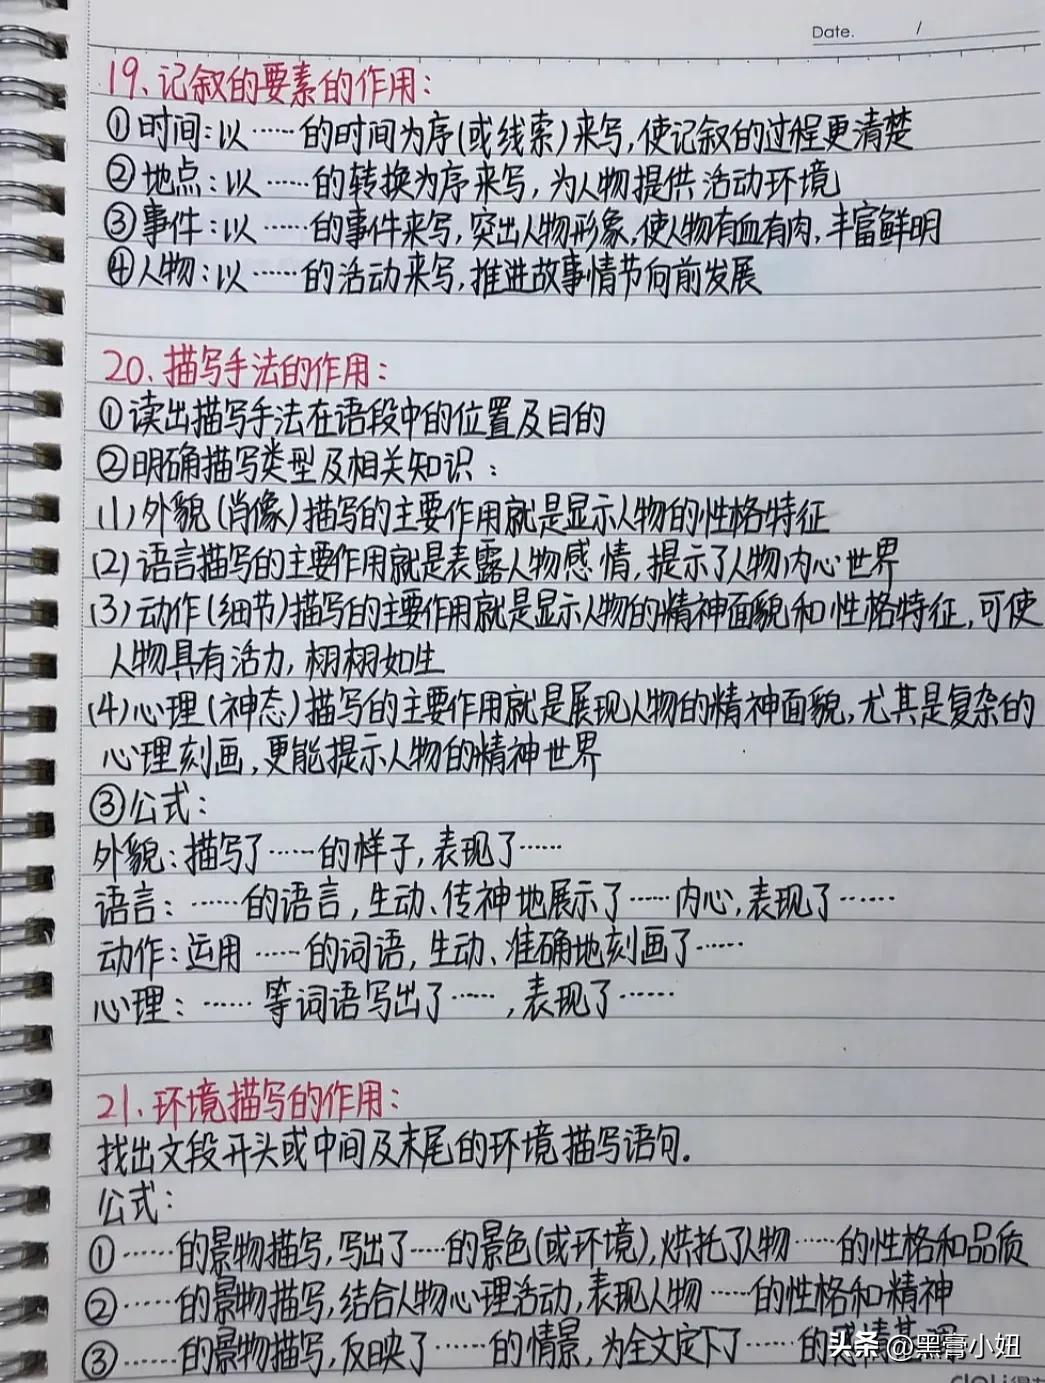 Date. /
19、记叙的要素的作用：
①时间：以……的时间为序(或线索)来写,使记叙的过程更清楚
②地点：以……的转换为序来写，为人物提供活动环境
③事件：以……的事件来写,突出人物形象,使人物有血有肉,丰富鲜明
④人物：以……的活动来写,推进故事情节向前发展
20、描写手法的作用：
①读出描写手法在语段中的位置及目的
②明确描写类型及相关知识：
(1)外貌(肖像)描写的主要作用就是显示人物的性格特征
(2)语言描写的主要作用就是表露人物感情,提示了人物内心世界
(3)动作(细节)描写的主要作用就是显示人物的精神面貌和性格特征,可使
人物具有活力,栩栩如生
(4)心理(神态)描写的主要作用就是展现人物的精神面貌,尤其是复杂的
心理刻画,更能提示人物的精神世界
③公式：
外貌：描写了……的样子,表现了……
语言：……的语言,生动、传神地展示了……内心,表现了……
动作：运用……的词语,生动、准确地刻画了……
心理：……等词语写出了……,表现了……
21、环境描写的作用：
找出文段开头或中间及末尾的环境描写语句.
公式：
①……的景物描写,写出了……的景色(或环境),烘托了人物……的性格和品质
②……的景物描写,结合人物心理活动,表现人物……的性格和精神
③……的景物描写,反映了……的情景,为全文定下了……的感情基调
头条 @黑膏小妞
deli